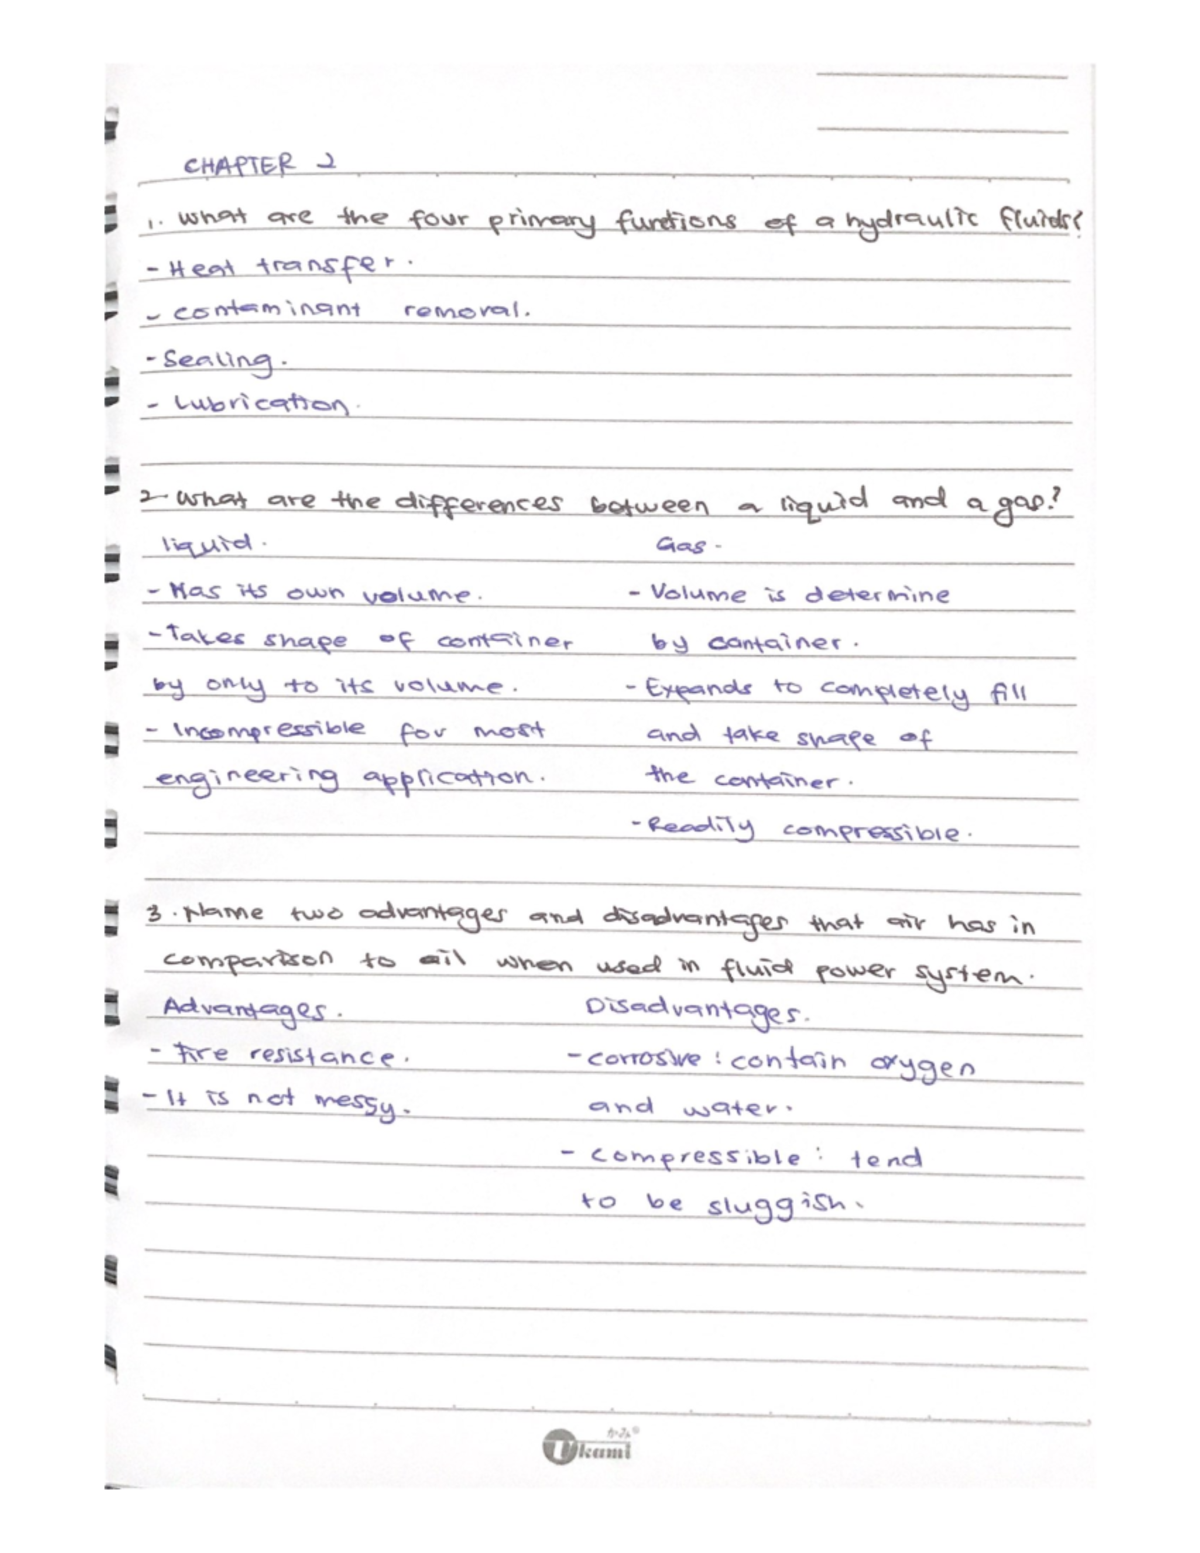 CHAPTER 2
1. What are the four primary functions of a hydraulic fluids?
- Heat transfer.
- contaminant removal.
- Sealing.
- Lubrication.
2. What are the differences between a liquid and a gas?
liquid. Gas.
- Has its own volume. - Volume is determine
- Takes shape of container by container.
by only to its volume. - Expands to completely fill
- Incompressible for most and take shape of
engineering application. the container.
- Readily compressible.
3. Name two advantages and disadvantages that air has in
comparison to oil when used in fluid power system.
Advantages. Disadvantages.
- Fire resistance. - corrosive : contain oxygen
- It is not messy. and water.
- compressible : tend
to be sluggish.
かみ®
Ukami